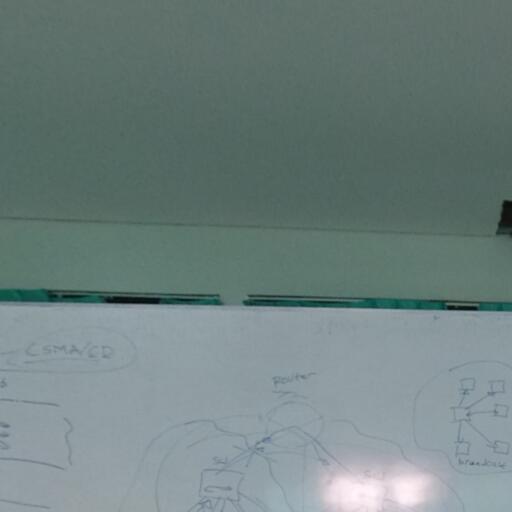 CSMA/CD
Router
Sw
Sw
broadcast